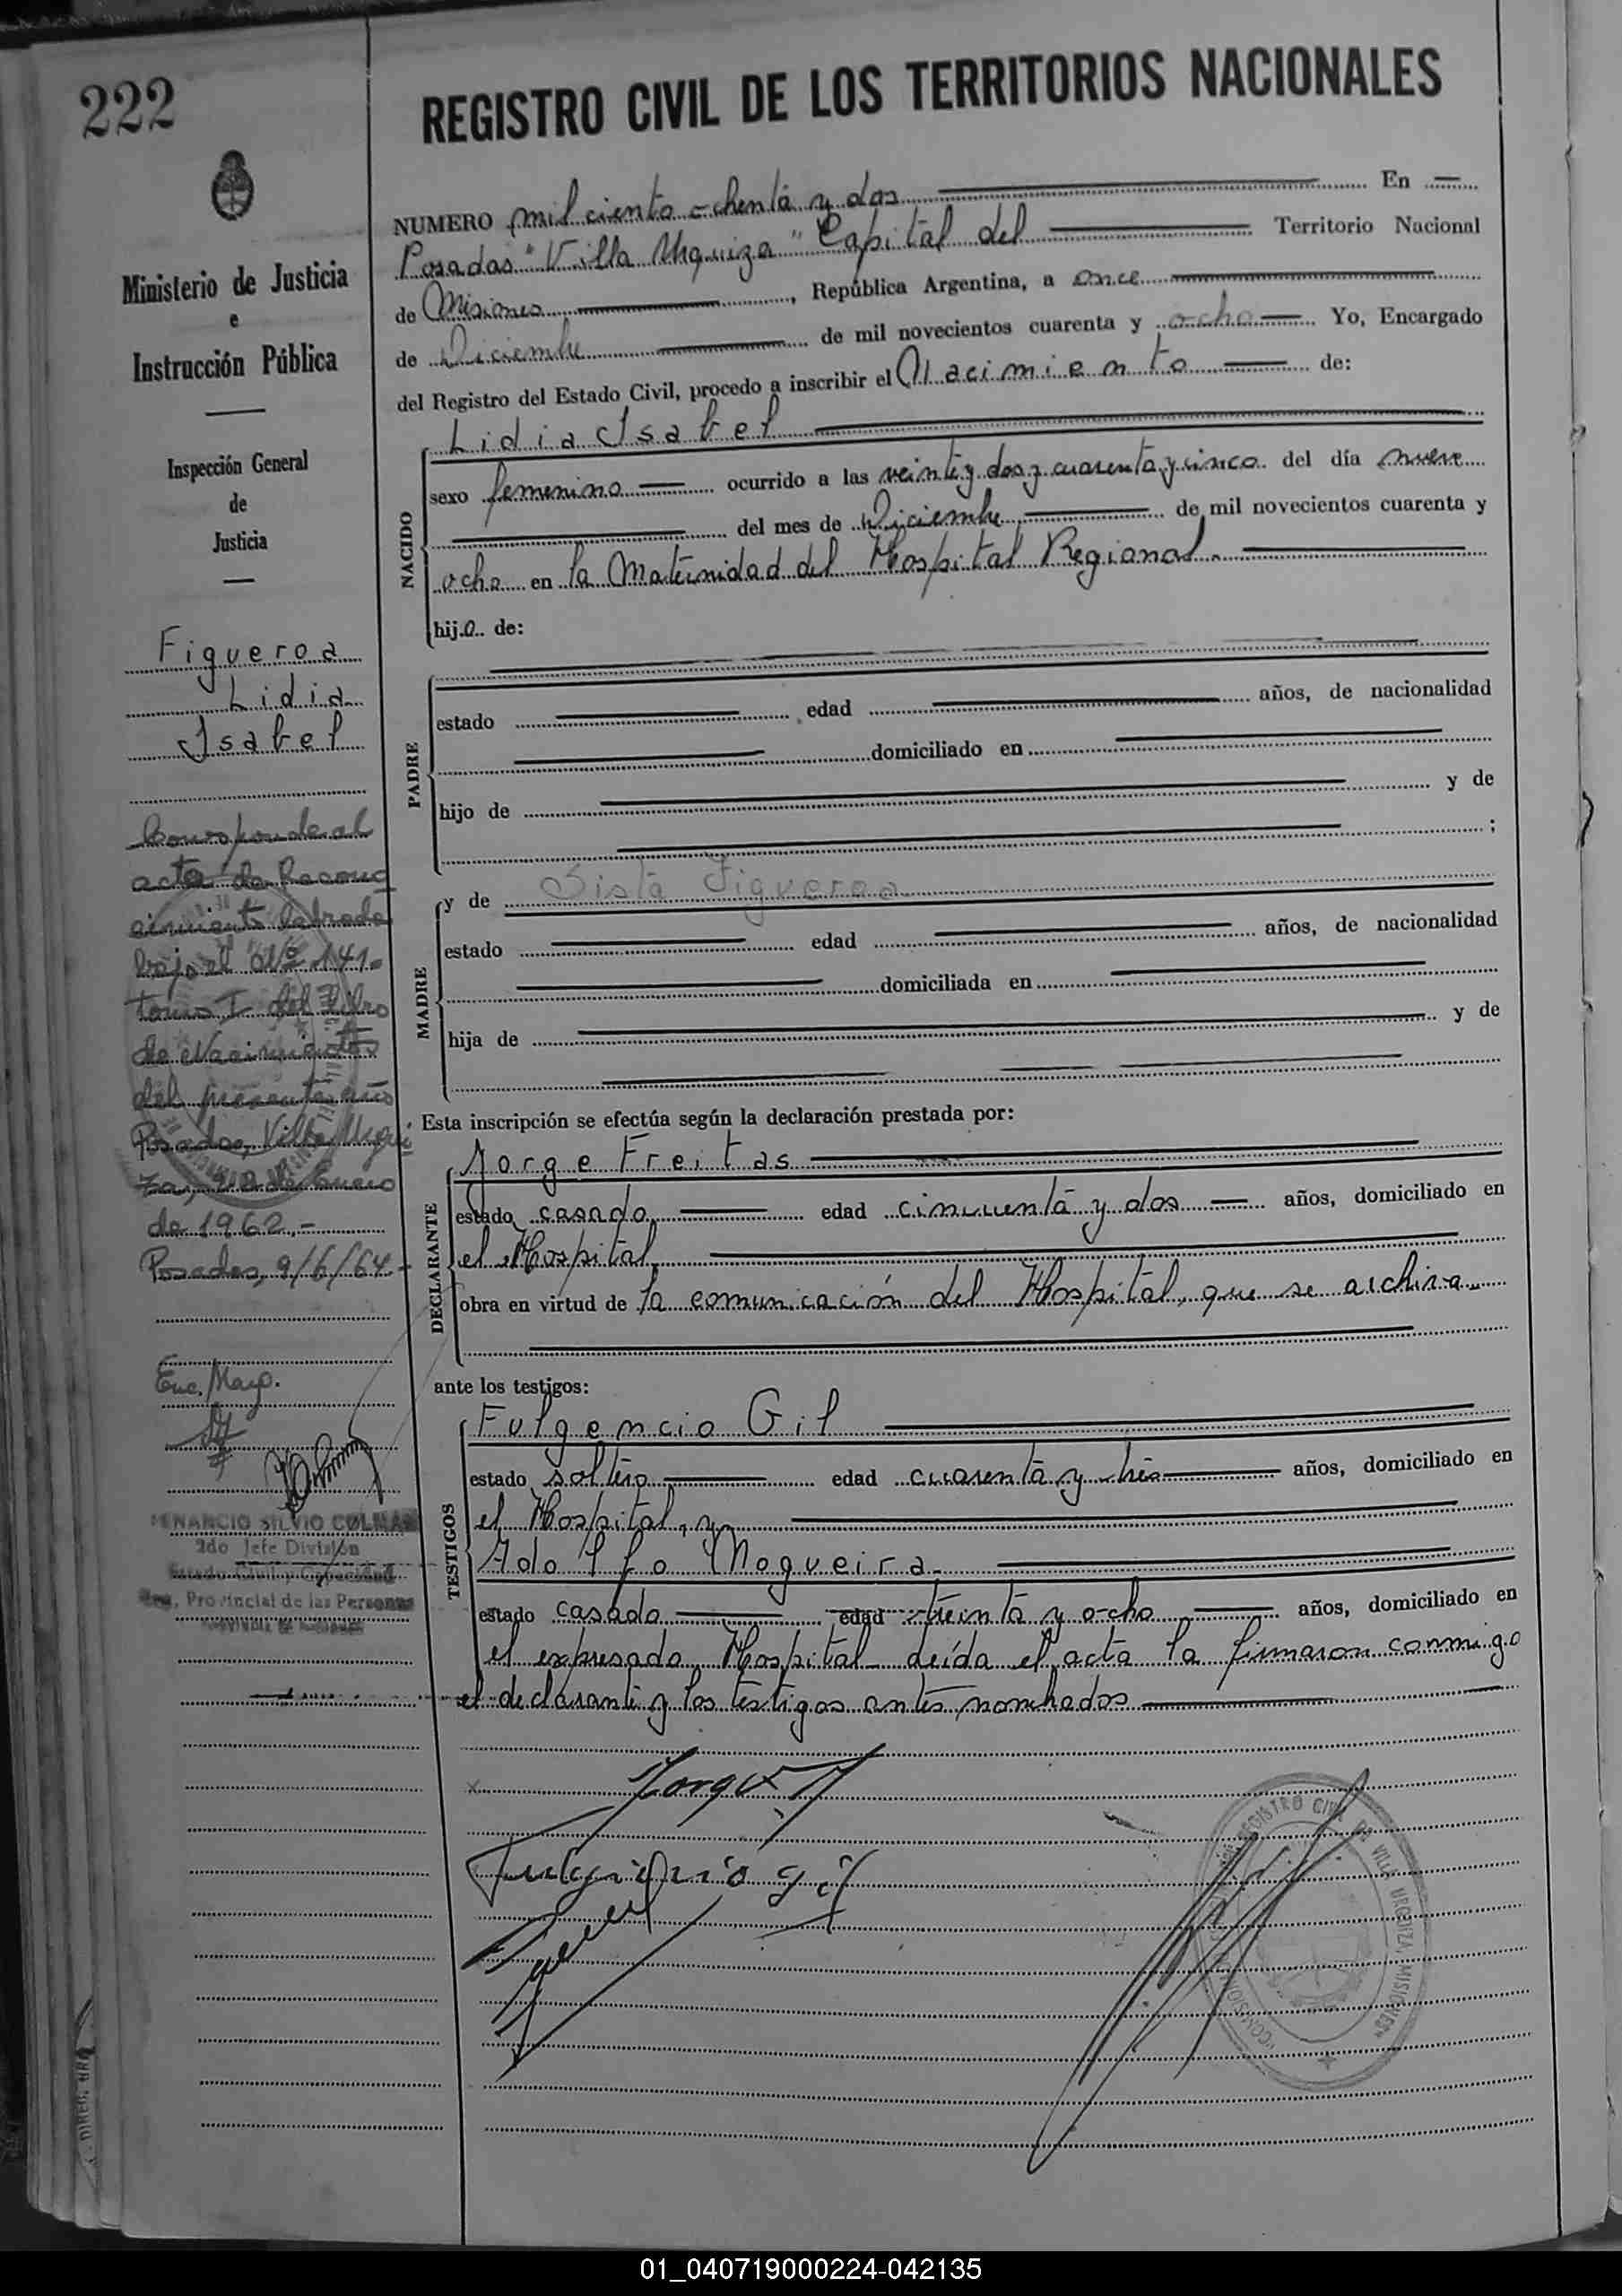 222
REGISTRO CIVIL DE LOS TERRITORIOS NACIONALES
Ministerio de Justicia
e
Instrucción Pública
Inspección General
de
Justicia
Figueroa
Lidia
Isabel
Corresponde al
acta de Recono
cimiento labrada
bajo el Nº 141-
tomo I del Libro
de Nacimientos
del presente año
Posadas, Villa Urqui
za, de Enero
de 1962.-
Posadas, 9/6/64.-
Enc. Mayo.
VENANCIO SILVIO COLMAN
2do Jefe División
Estado Civil y Capacidad
Reg. Provincial de las Personas
NUMERO mil ciento ochenta y dos En
Posadas "Villa Urquiza" Capital del Territorio Nacional
de Misiones, República Argentina, a once
de Diciembre de mil novecientos cuarenta y ocho Yo, Encargado
del Registro del Estado Civil, procedo a inscribir el Nacimiento de:
NACIDO
Lidia Isabel
sexo femenino ocurrido a las veinte y dos y cuarenta y cinco del día nueve
del mes de Diciembre de mil novecientos cuarenta y
ocho en la Maternidad del Hospital Regional.
hija de:
PADRE
estado edad años, de nacionalidad
domiciliado en
hijo de y de
;
MADRE
y de Sista Figueroa
estado edad años, de nacionalidad
domiciliada en
hija de y de
Esta inscripción se efectúa según la declaración prestada por:
DECLARANTE
Jorge Freitas
estado casado edad cincuenta y dos años, domiciliado en
el Hospital
obra en virtud de la comunicación del Hospital, que se archiva
ante los testigos:
TESTIGOS
Fulgencio Gil
estado soltero edad cuarenta y tres años, domiciliado en
el Hospital, y
Adolfo Nogueira
estado casado edad treinta y ocho años, domiciliado en
el expresado Hospital leída el acta la firmaron conmigo
el declarante y los testigos antes nombrados
Jorge F
Fulgencio Gil
REGISTRO CIVIL DE VILLA URQUIZA MISIONES
01_040719000224-042135